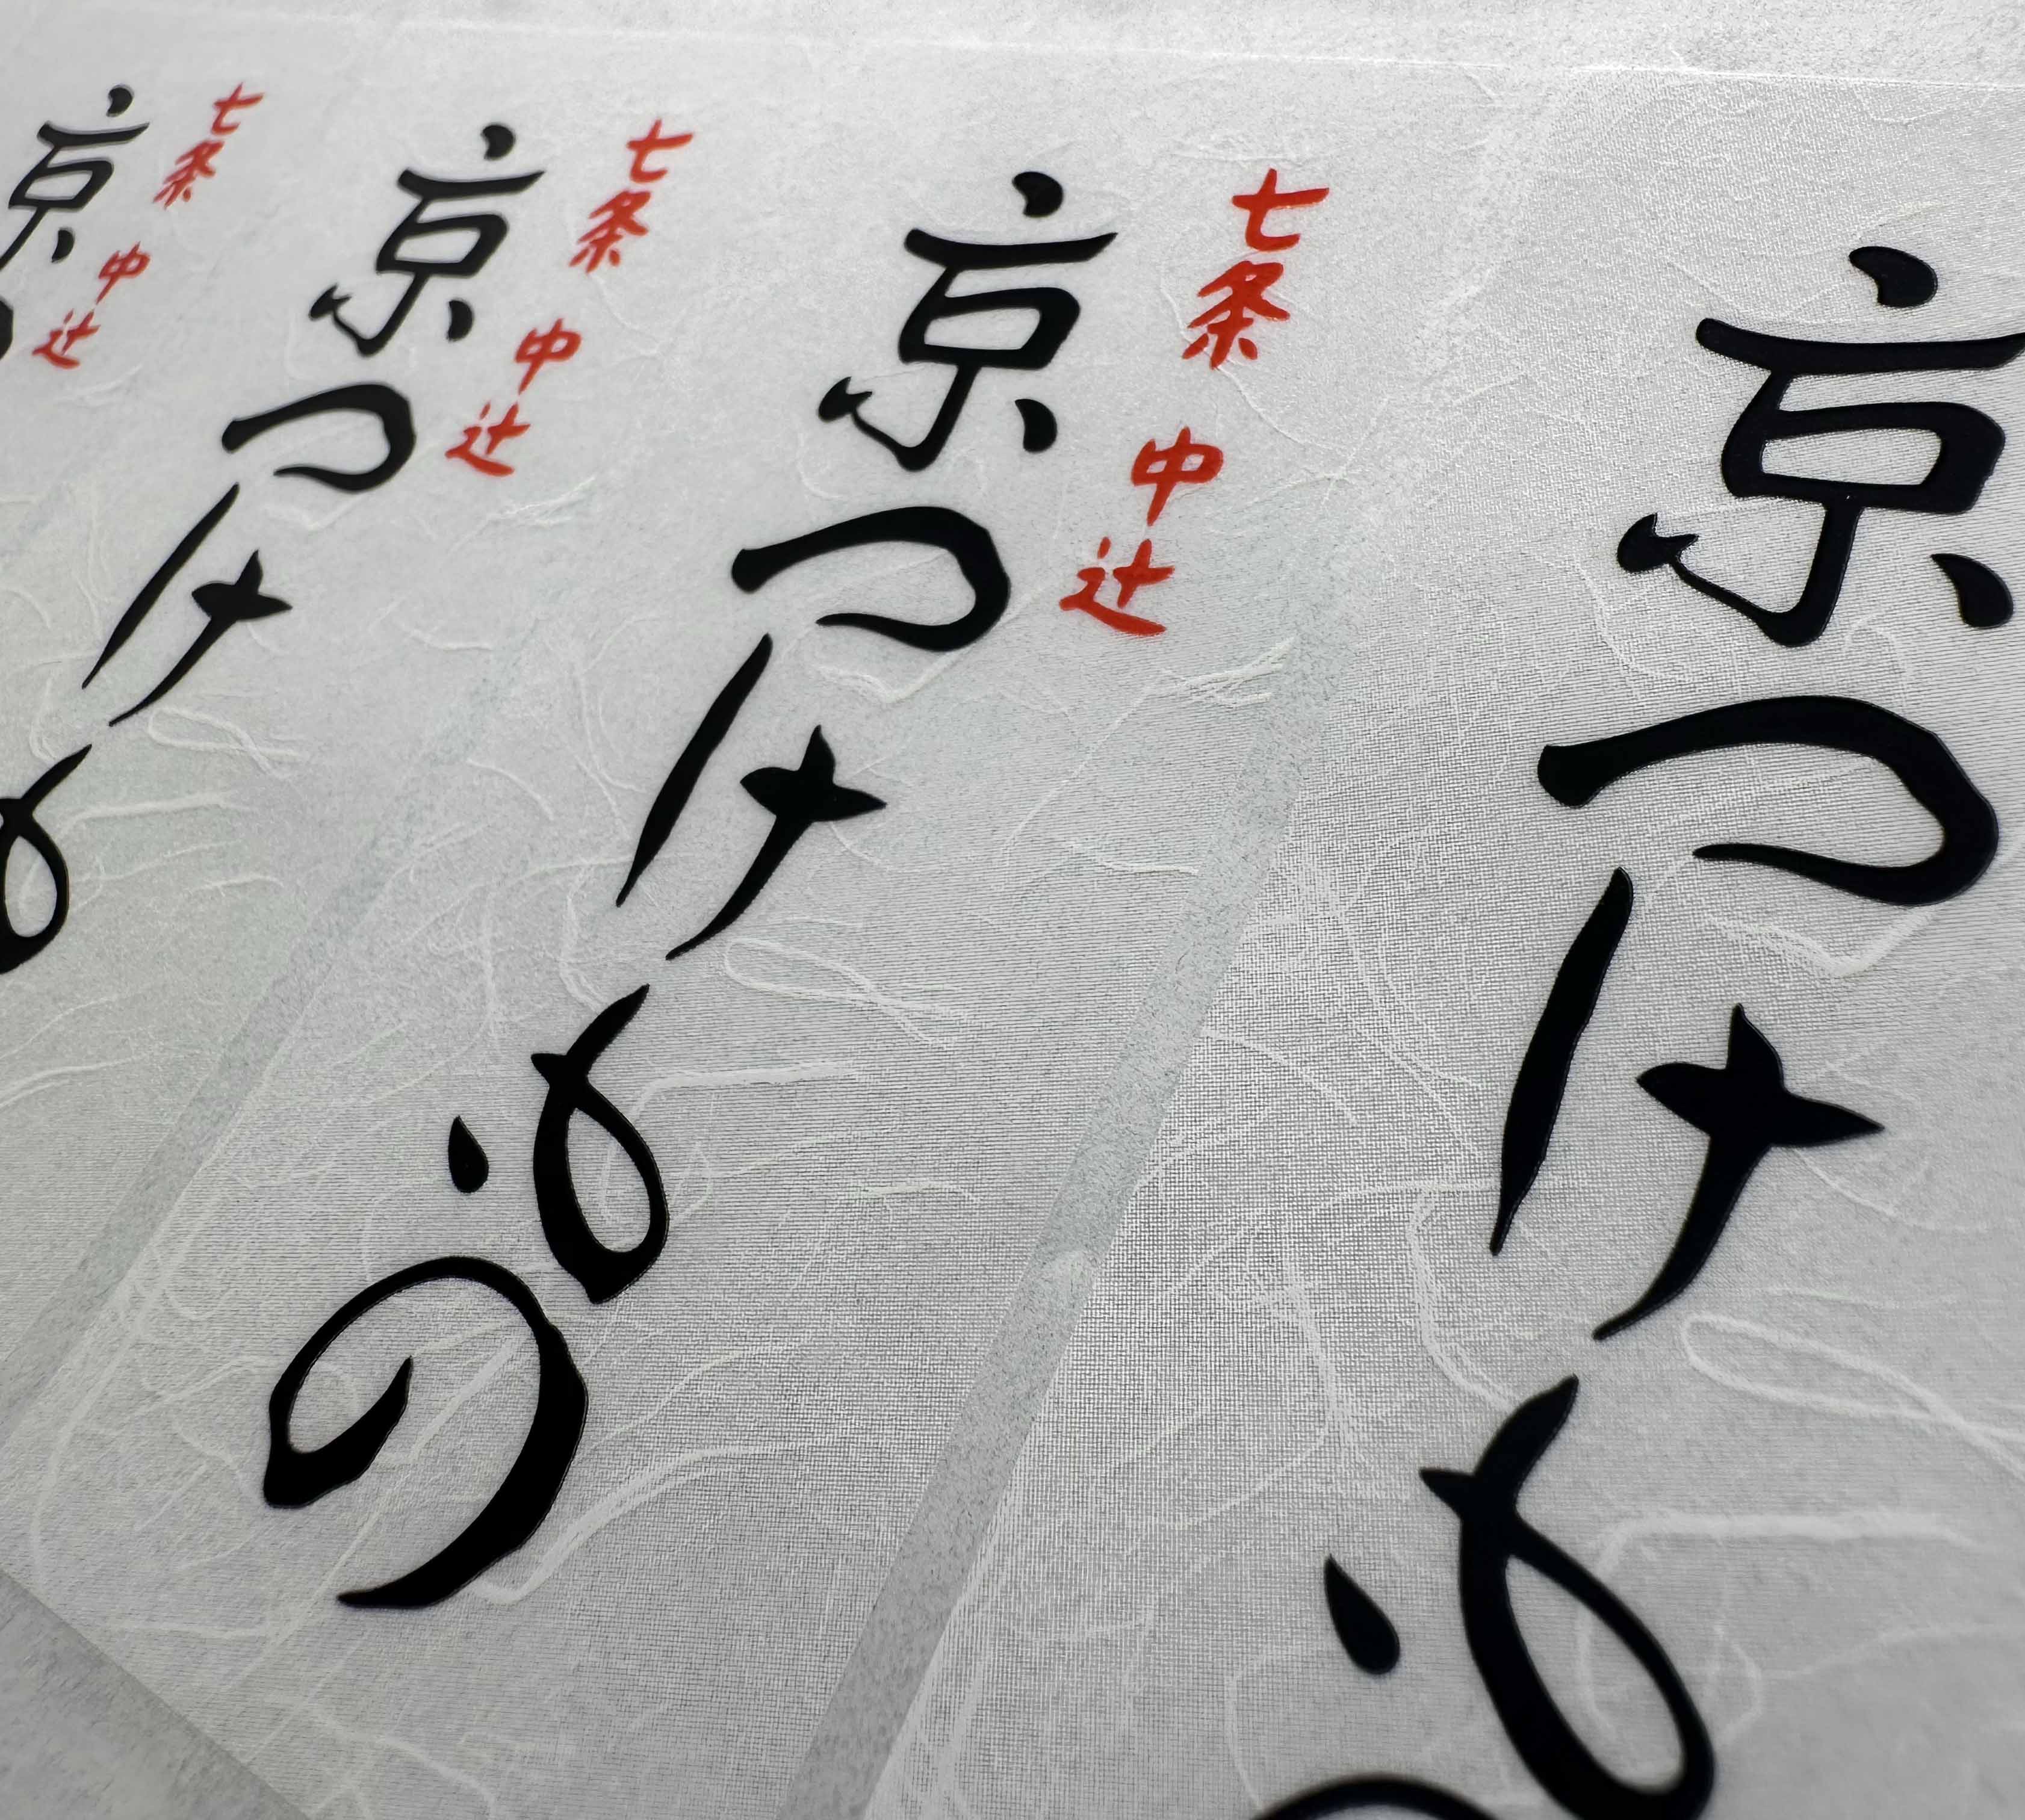 京つけも
七条 中辻
京つけもの
七条 中辻
京つけも
七条 中辻
京